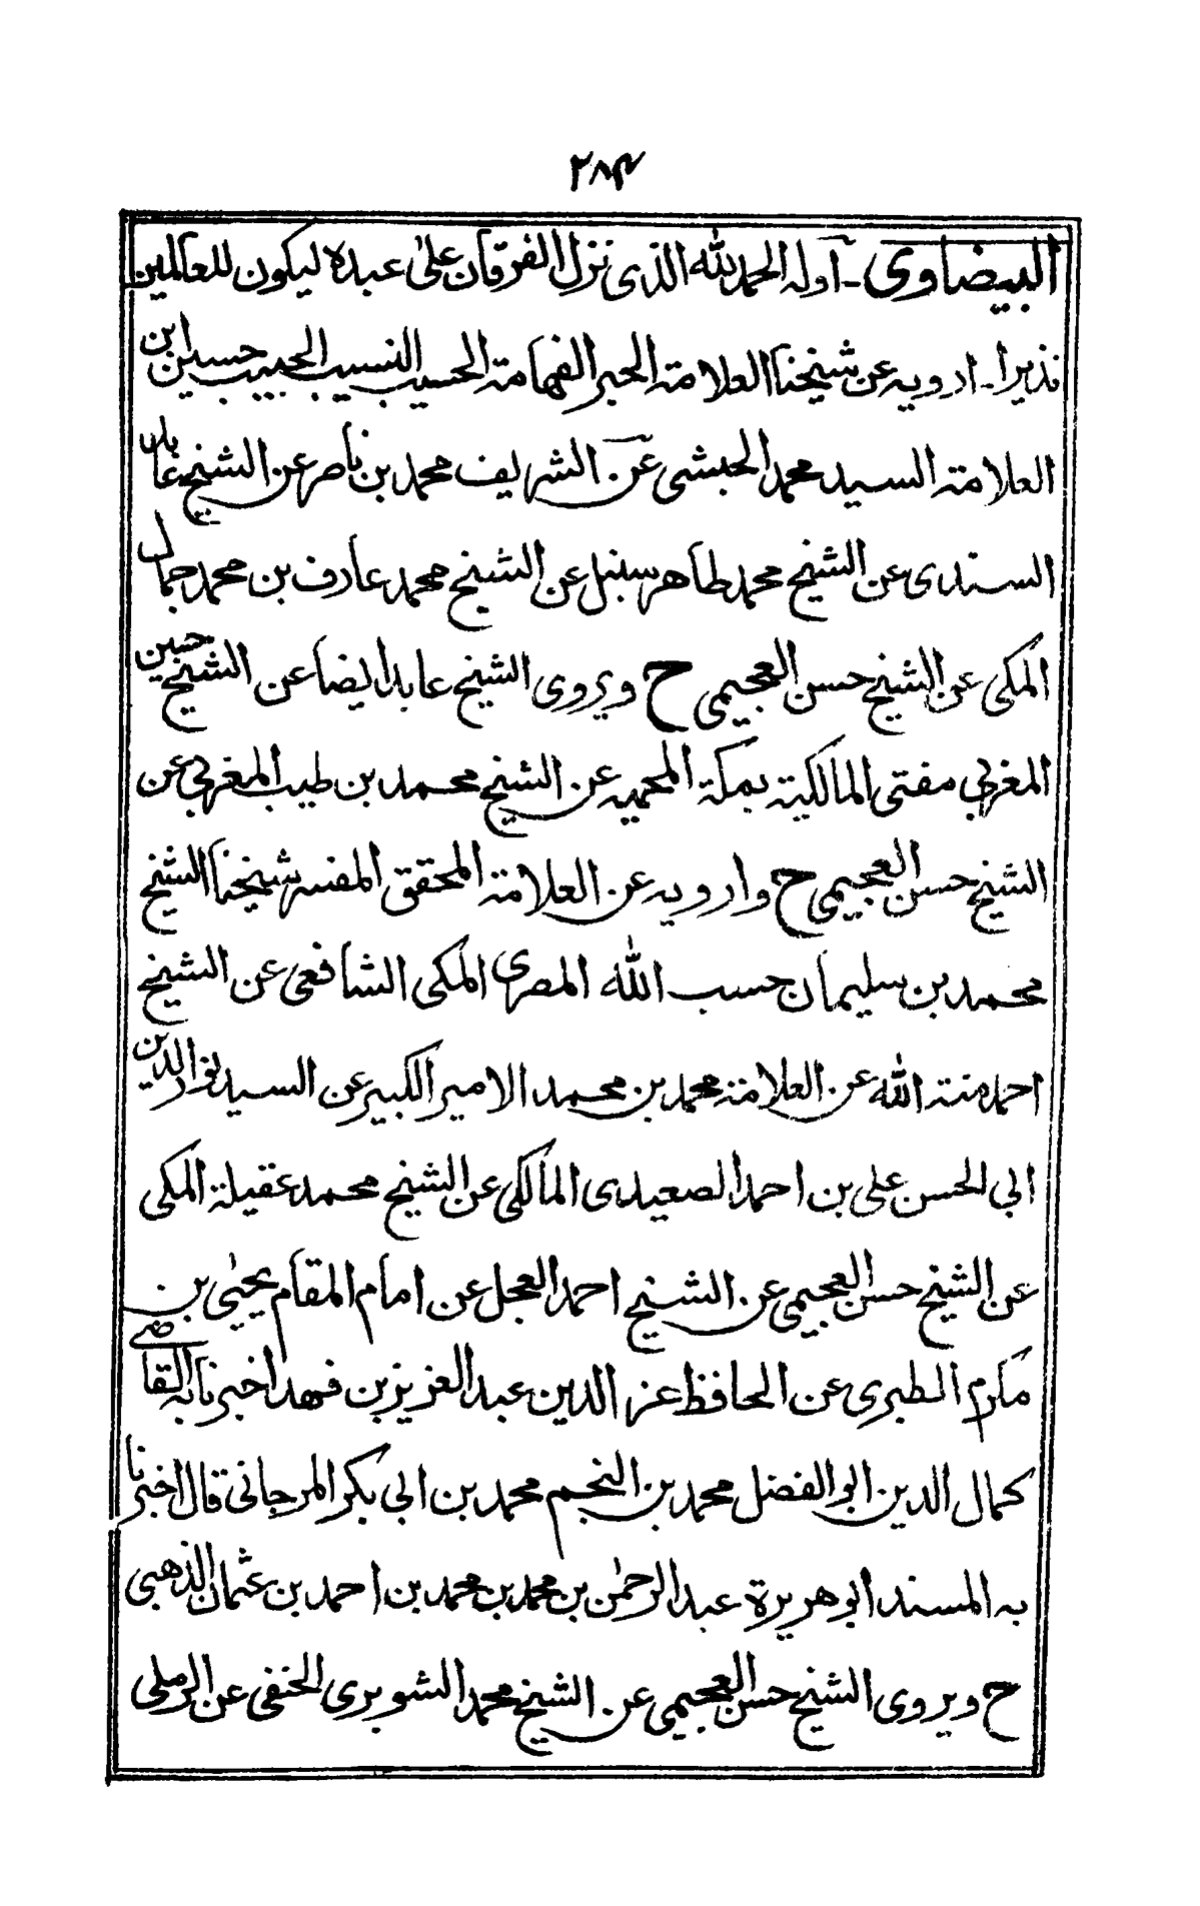 ٢٨٤
البيضاوى - اوله الحمد لله الذى نزل الفرقان على عبده ليكون للعالمين
نذيرا - ارويه عن شيخنا العلامة الحبر الفهامة الحسيب النسيب الحبيب حسين ابن
العلامة السيد محمد الحبشى عن الشريف محمد بن ناصر عن الشيخ عابد
السندى عن الشيخ محمد طاهر سنبل عن الشيخ محمد عارف بن محمد جمال
المكى عن الشيخ حسن العجيمى ح ويروى الشيخ عابد ايضا عن الشيخ حسين
المغربى مفتى المالكية بمكة المحميه عن الشيخ محمد بن طيب المغربى عن
الشيخ حسن العجيمى ح وارويه عن العلامة المحقق المفسر شيخنا الشيخ
محمد بن سليمان حسب الله المصرى المكى الشافعى عن الشيخ
احمد منة الله عن العلامة محمد بن محمد الامير الكبير عن السيد نور الدين
ابى الحسن على بن احمد الصعيدى المالكى عن الشيخ محمد عقيلة المكى
عن الشيخ حسن العجيمى عن الشيخ احمد العجل عن امام المقام يحيى بن
مكرم الطبرى عن الحافظ عز الدين عبد العزيز بن فهد اخبرنا به القاضى
كمال الدين ابو الفضل محمد بن النجم محمد بن ابى بكر المرجانى قال اخبرنا
به المسند ابو هريرة عبد الرحمٰن بن محمد بن محمد بن احمد بن عثمان الذهبى
ح ويروى الشيخ حسن العجيمى عن الشيخ محمد الشوبرى الحنفى عن الرملى